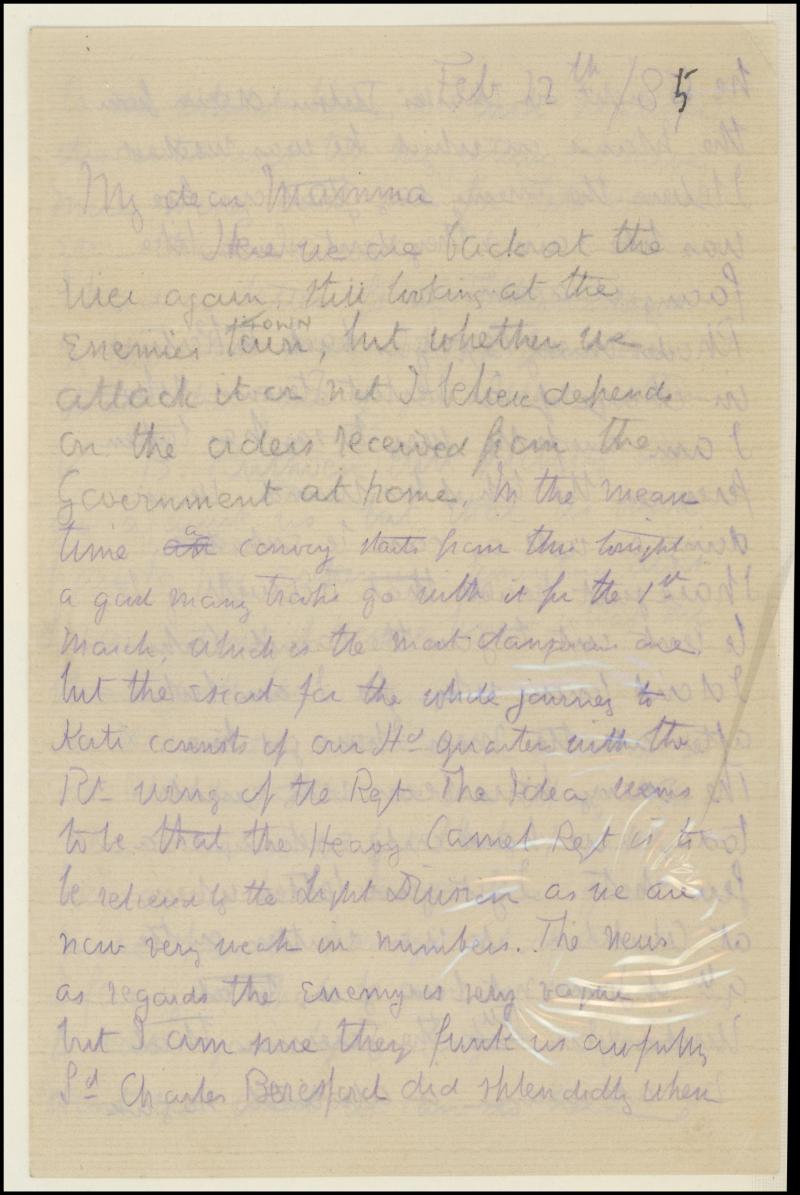 Feb 12th /85
My dear Mamma
Here we are back at the
river again, still looking at the
Enemies town TOWN, but whether we
attack it or not I believe depends
on the orders received from the
Government at home. In the mean
time a convoy starts from this tonight
a good many troops go with it for the 1st
March, which is the most dangerous one
but the escort for the whole journey to
Korti consists of our Hd quarters with the
Rt wing of the Regt. The Idea seems
to be that the Heavy Camel Regt is to
be relieved by the Light Division as we are
now very weak in numbers. The news
as regards the Enemy is very vague
but I am sure they funk us awfully
Ld Charles Beresford did splendidly when